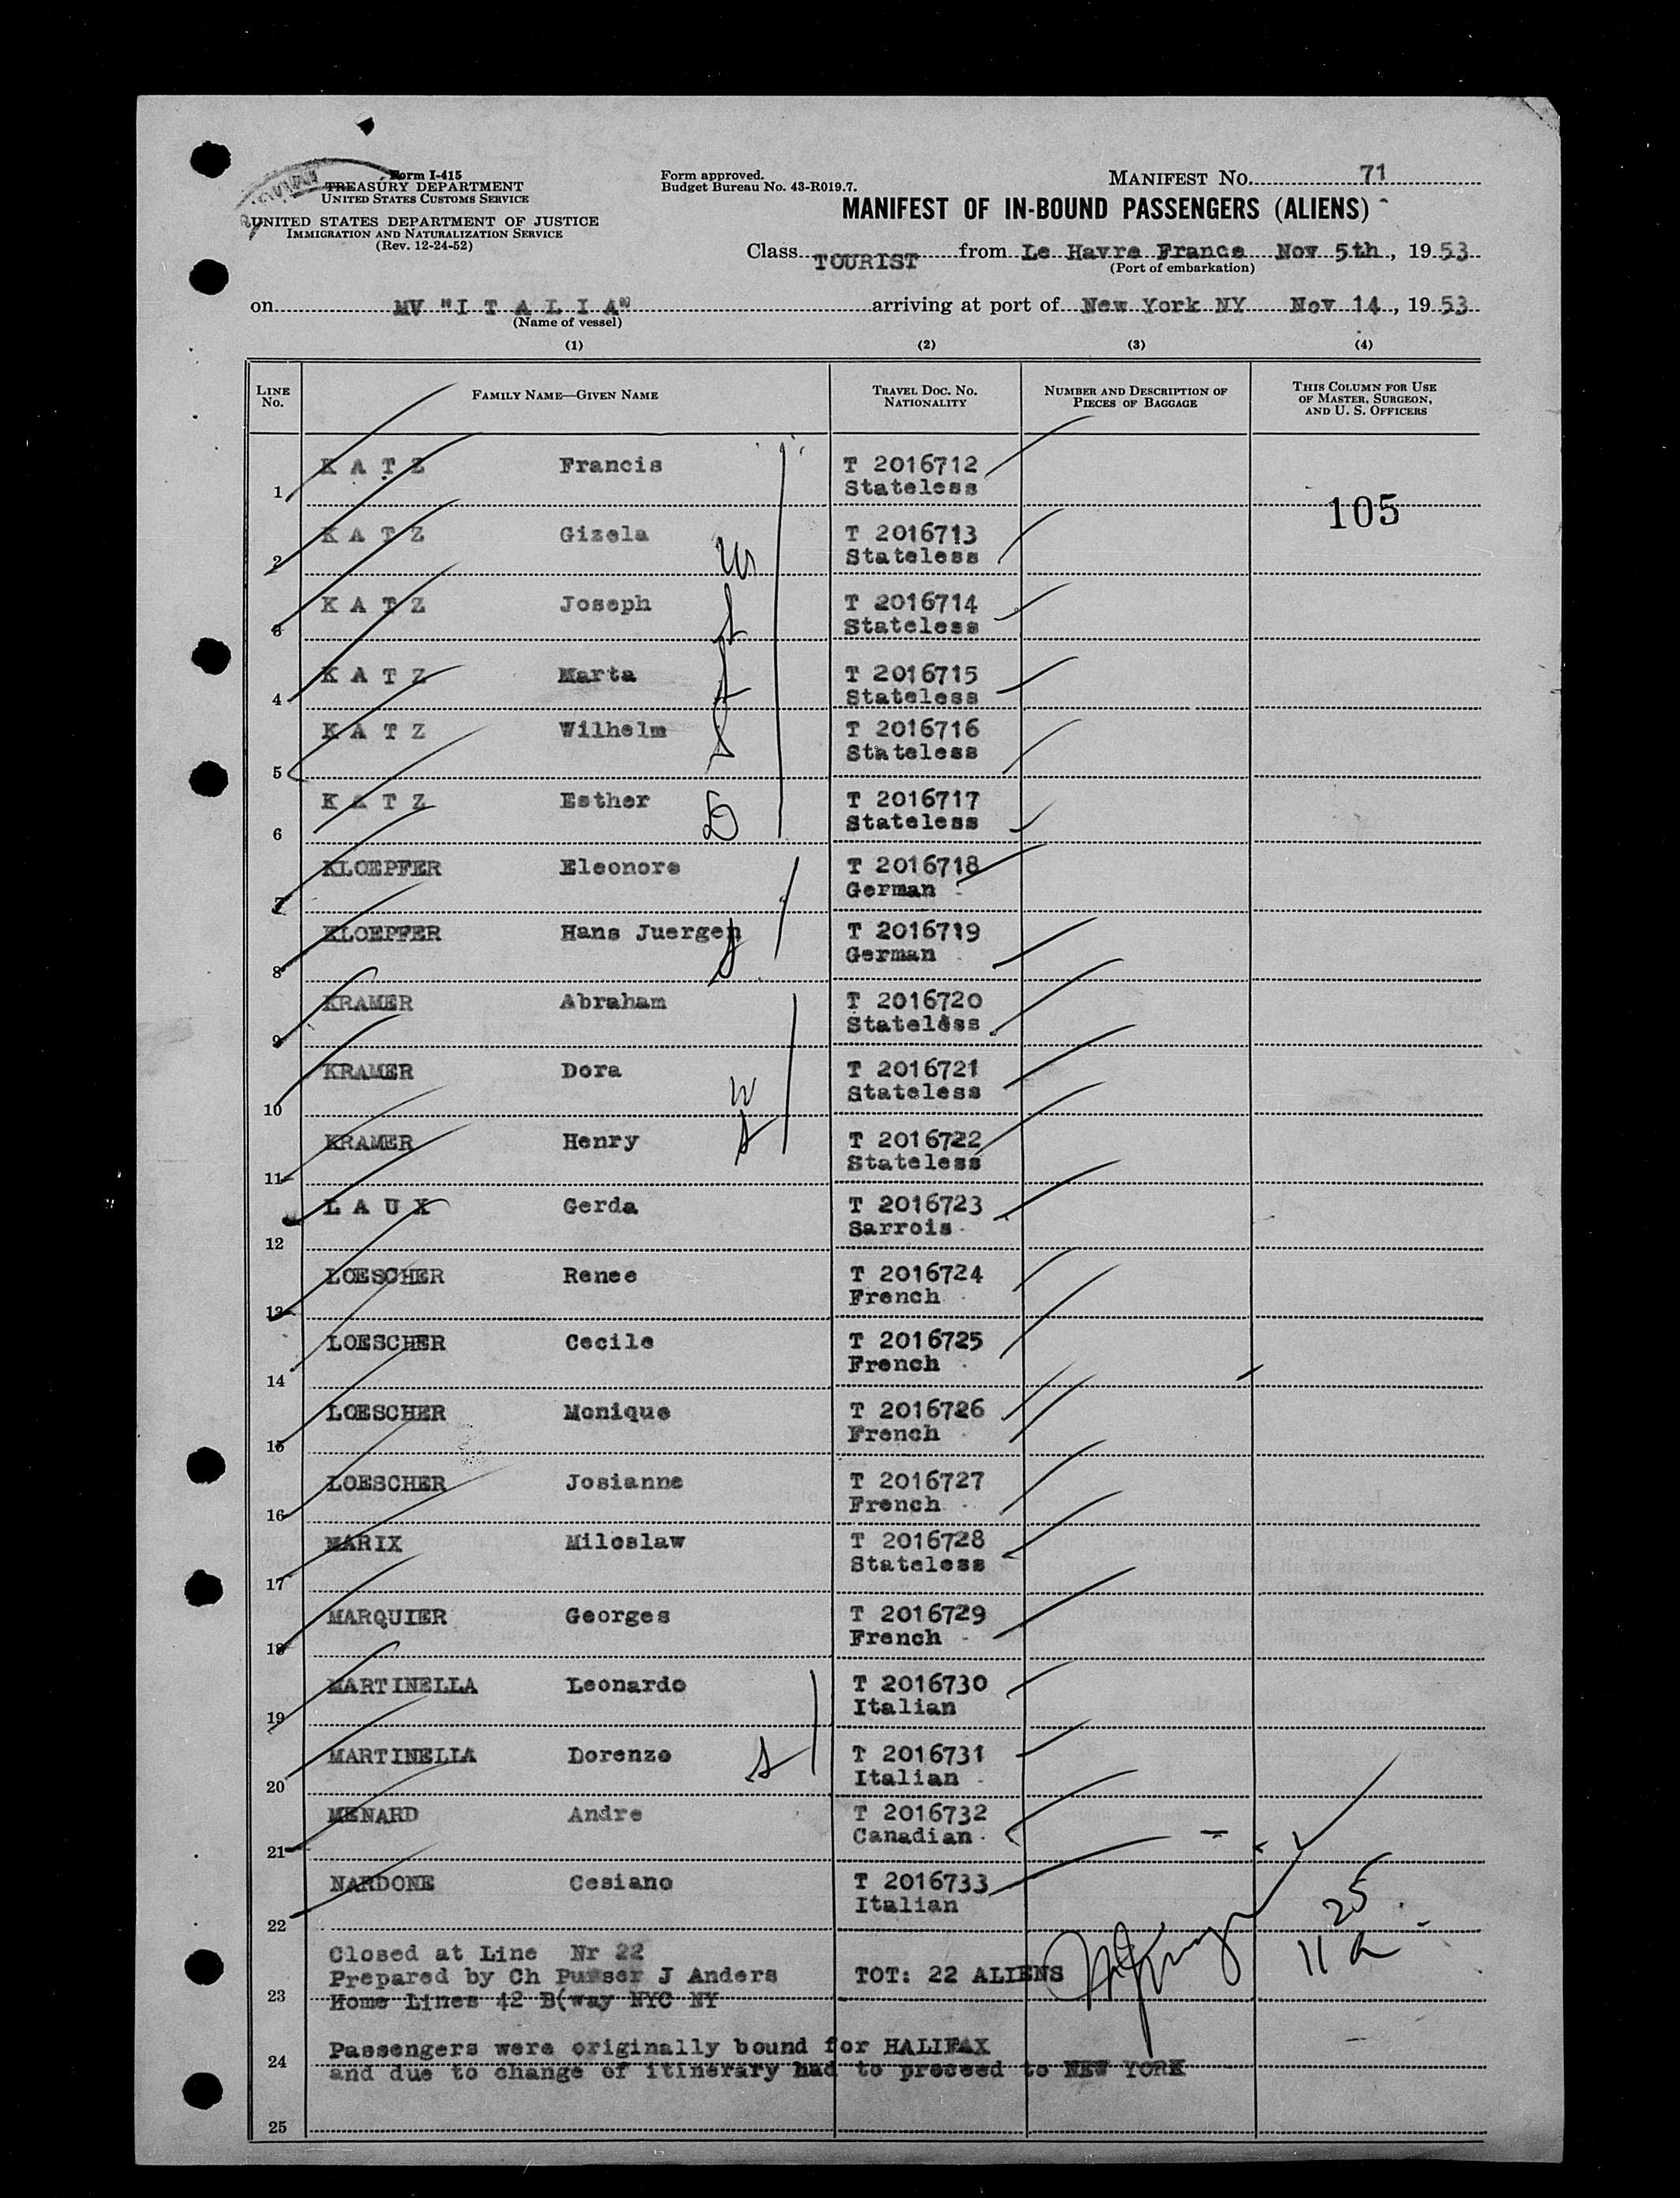 Form I-415
TREASURY DEPARTMENT
UNITED STATES CUSTOMS SERVICE
UNITED STATES DEPARTMENT OF JUSTICE
IMMIGRATION AND NATURALIZATION SERVICE
(Rev. 12-24-52)
Form approved.
Budget Bureau No. 43-R019.7.
MANIFEST NO. 71
MANIFEST OF IN-BOUND PASSENGERS (ALIENS)
Class TOURIST from Le Havre France Nov 5th, 1953
(Port of embarkation)
on MV "I T A L I A" arriving at port of New York NY Nov 14, 1953
(Name of vessel)
(1) (2) (3) (4)
LINE No. FAMILY NAME—GIVEN NAME TRAVEL DOC. NO. NATIONALITY NUMBER AND DESCRIPTION OF PIECES OF BAGGAGE THIS COLUMN FOR USE OF MASTER, SURGEON, AND U. S. OFFICERS
1 K A T Z Francis T 2016712 Stateless
105
2 K A T Z Gizela T 2016713 Stateless
3 K A T Z Joseph T 2016714 Stateless
4 K A T Z Marta T 2016715 Stateless
5 K A T Z Wilhelm T 2016716 Stateless
6 K A T Z Esther T 2016717 Stateless
7 KLOEPFER Eleonore T 2016718 German
8 KLOEPFER Hans Juergen T 2016719 German
9 KRAMER Abraham T 2016720 Stateless
10 KRAMER Dora T 2016721 Stateless
11 KRAMER Henry T 2016722 Stateless
12 L A U X Gerda T 2016723 Sarrois
13 LOESCHER Renee T 2016724 French
14 LOESCHER Cecile T 2016725 French
15 LOESCHER Monique T 2016726 French
16 LOESCHER Josianne T 2016727 French
17 MARIX Miloslaw T 2016728 Stateless
18 MARQUIER Georges T 2016729 French
19 MARTINELLA Leonardo T 2016730 Italian
20 MARTINELLA Dorenzo T 2016731 Italian
21 MENARD Andre T 2016732 Canadian
22 NARDONE Cesiano T 2016733 Italian
25
11 a
Closed at Line Nr 22
Prepared by Ch Purser J Anders TOT: 22 ALIENS
23 Home Lines 42 B(way NYC NY
Passengers were originally bound for HALIFAX
24 and due to change of itinerary had to proceed to NEW YORK
25